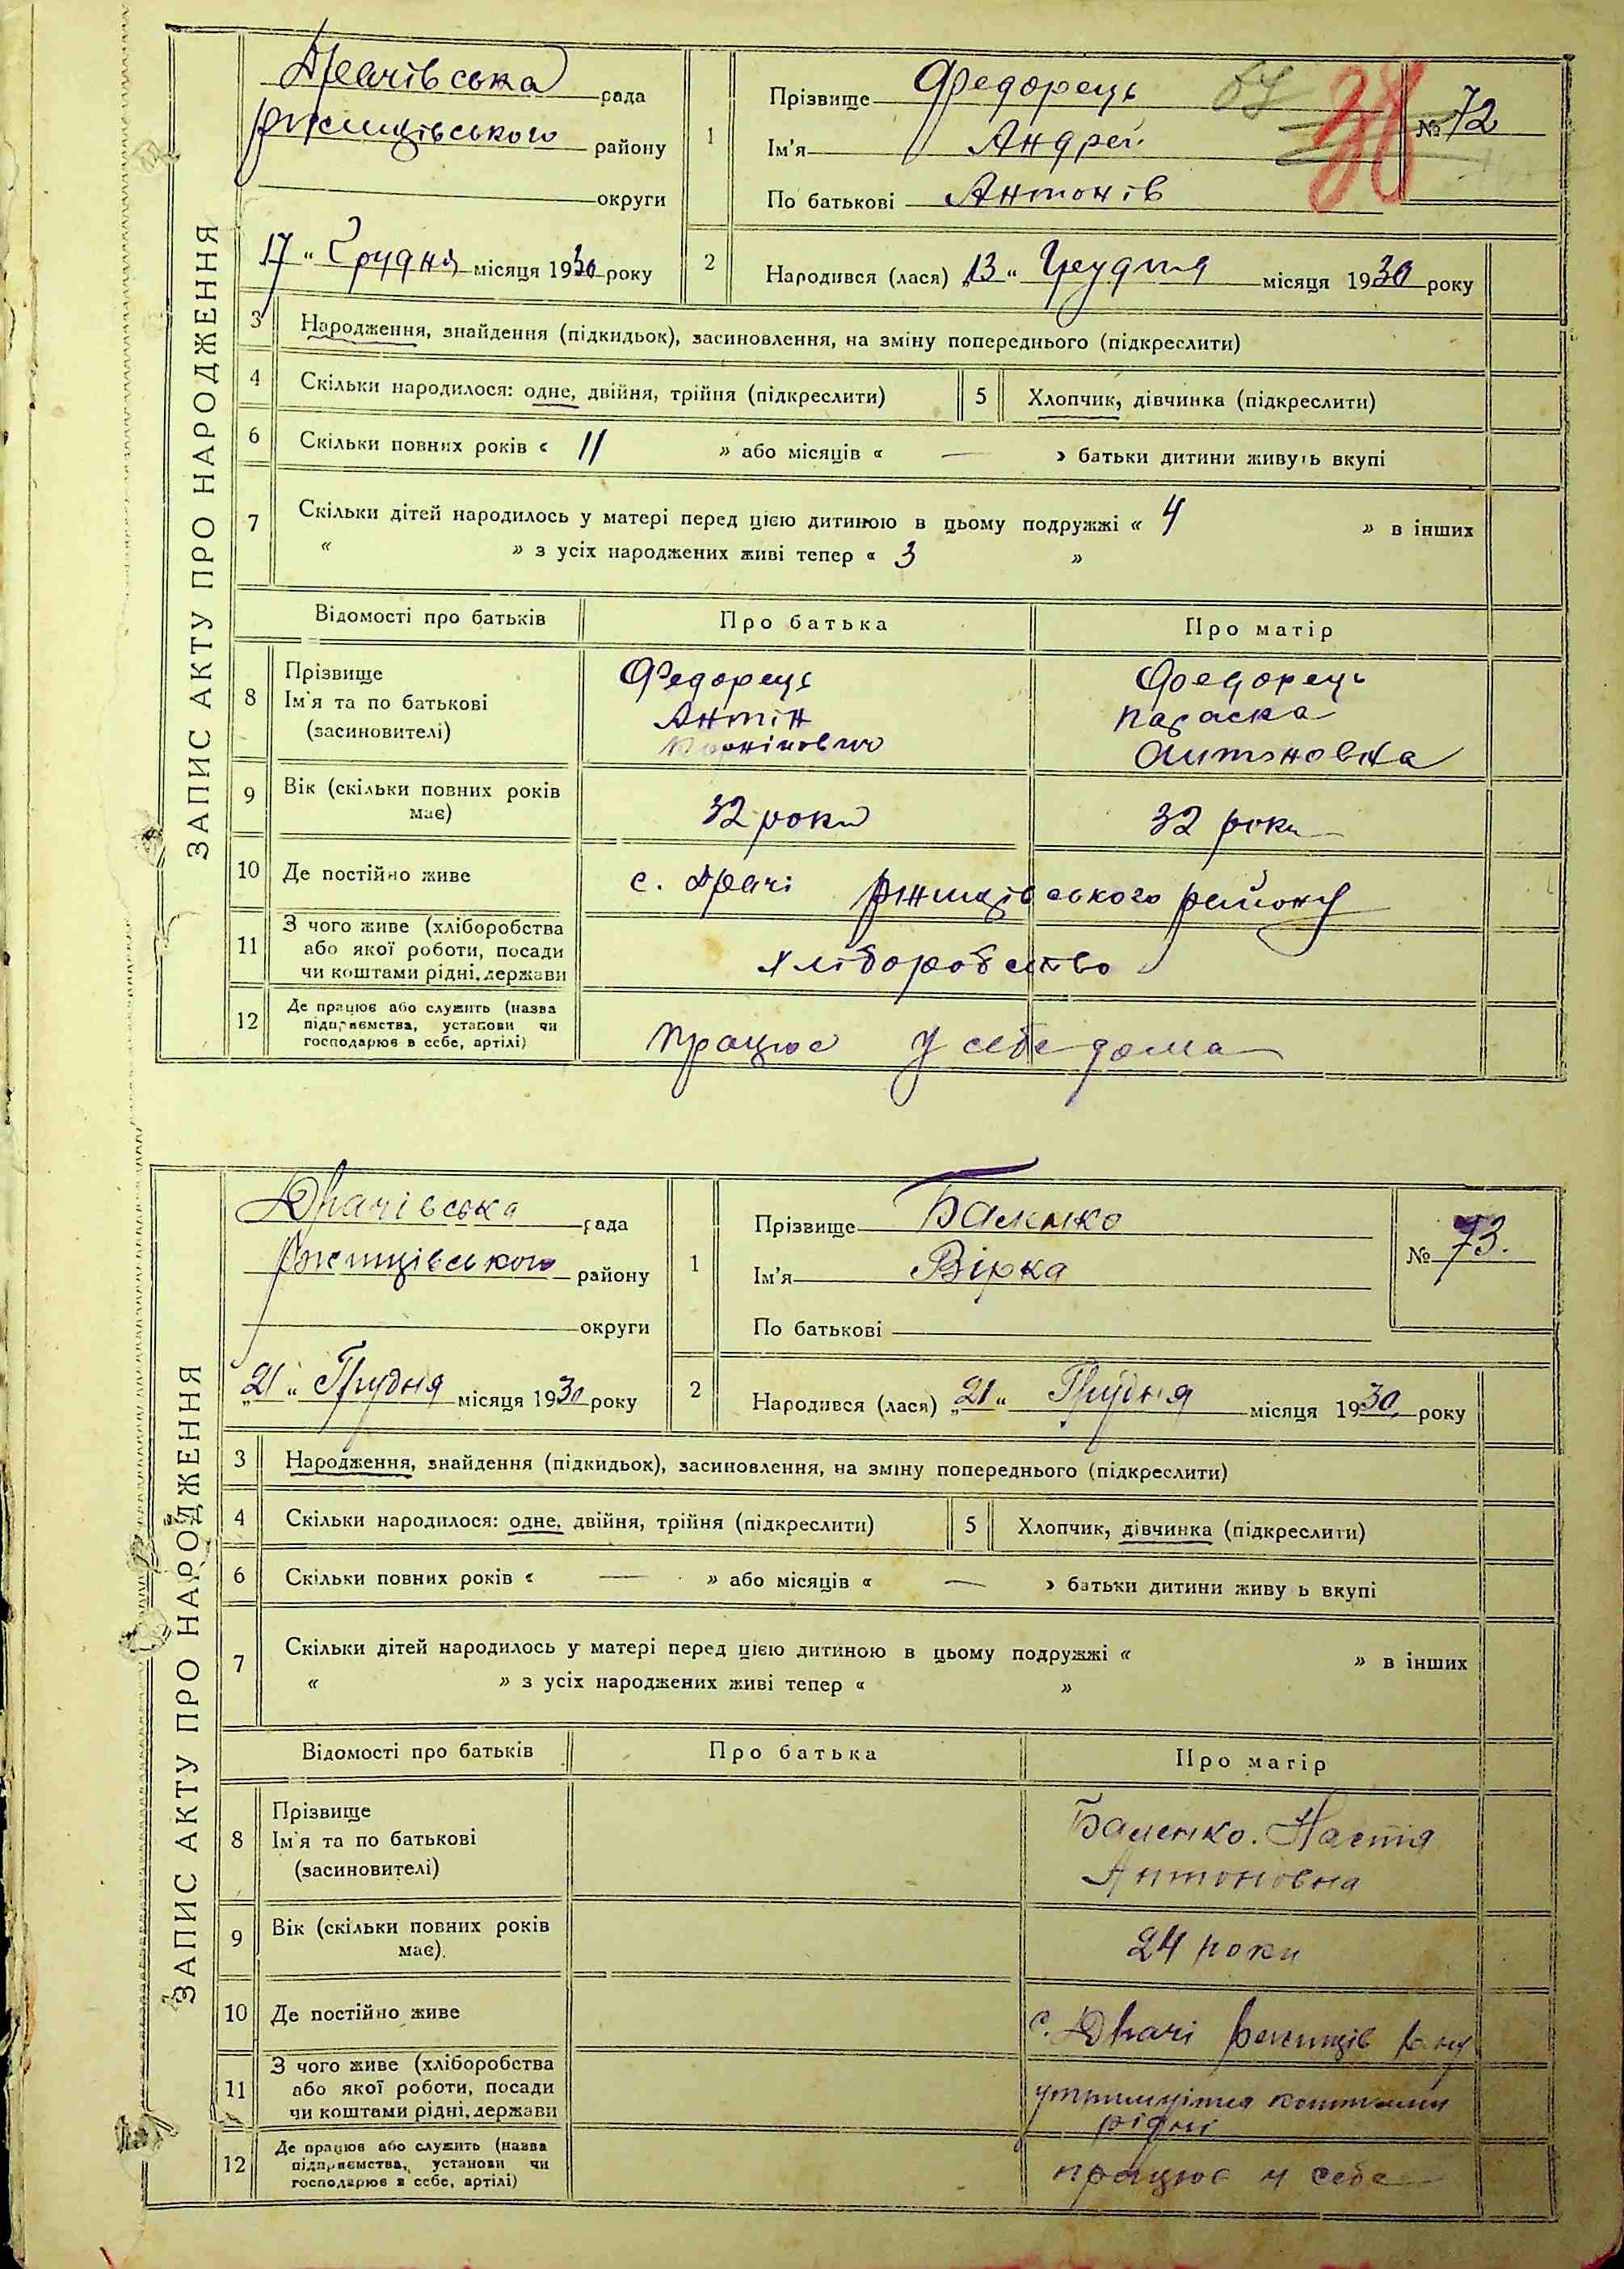 ЗАПИС АКТУ ПРО НАРОДЖЕННЯ
Драчівська рада
Ржищівського району
округи
17 " Грудня місяця 1930 року
1
Прізвище Федорець
Ім'я Андрей
По батькові Антонів
38
№ 72
2
Народився (лася) „13 " Грудня місяця 1930 року
3 Народження, знайдення (підкидьок), засиновлення, на зміну попереднього (підкреслити)
4 Скільки народилося: одне, двійня, трійня (підкреслити) 5 Хлопчик, дівчинка (підкреслити)
6 Скільки повних років « 11 » або місяців « — » батьки дитини живуть вкупі
7 Скільки дітей народилось у матері перед цією дитиною в цьому подружжі « 4 » в інших
« » з усіх народжених живі тепер « 3 »
Відомості про батьків Про батька Про матір
8 Прізвище
Ім'я та по батькові
(засиновителі)
Федорець
Антін
Федорець
Параска
Антоновна
9 Вік (скільки повних років
має)
32 роки 32 роки
10 Де постійно живе с. Драчі Ржищівського району
11 З чого живе (хліборобства
або якої роботи, посади
чи коштами рідні, держави
хліборобство
12 Де працює або служить (назва
підприємства, установи чи
господарює в себе, артілі)
працює у себе дома
ЗАПИС АКТУ ПРО НАРОДЖЕННЯ
Драчівська рада
Ржищівського району
округи
„21 " Грудня місяця 1930 року
1
Прізвище Баленко
Ім'я Вірка
По батькові
№ 73.
2
Народився (лася) „21 " Грудня місяця 1930 року
3 Народження, знайдення (підкидьок), засиновлення, на зміну попереднього (підкреслити)
4 Скільки народилося: одне, двійня, трійня (підкреслити) 5 Хлопчик, дівчинка (підкреслити)
6 Скільки повних років « — » або місяців « — » батьки дитини живу ь вкупі
7 Скільки дітей народилось у матері перед цією дитиною в цьому подружжі « » в інших
« » з усіх народжених живі тепер « »
Відомості про батьків Про батька Про матір
8 Прізвище
Ім'я та по батькові
(засиновителі)
Баленко. Настя
Антоновна
9 Вік (скільки повних років
має).
24 роки
10 Де постійно живе с. Драчі Ржищів р-ну
11 З чого живе (хліборобства
або якої роботи, посади
чи коштами рідні, держави
коштами
рідні
12 Де працює або служить (назва
підприємства, установи чи
господарює в себе, артілі)
працює у себе